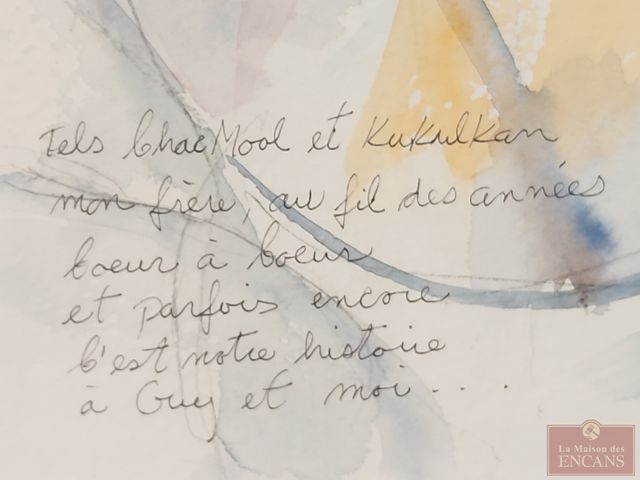 Tels Chac Mool et Kukulkan
mon frère, au fil des années
Coeur à Coeur
et parfois encore
C'est notre histoire
à Guy et moi....
La Maison des
ENCANS